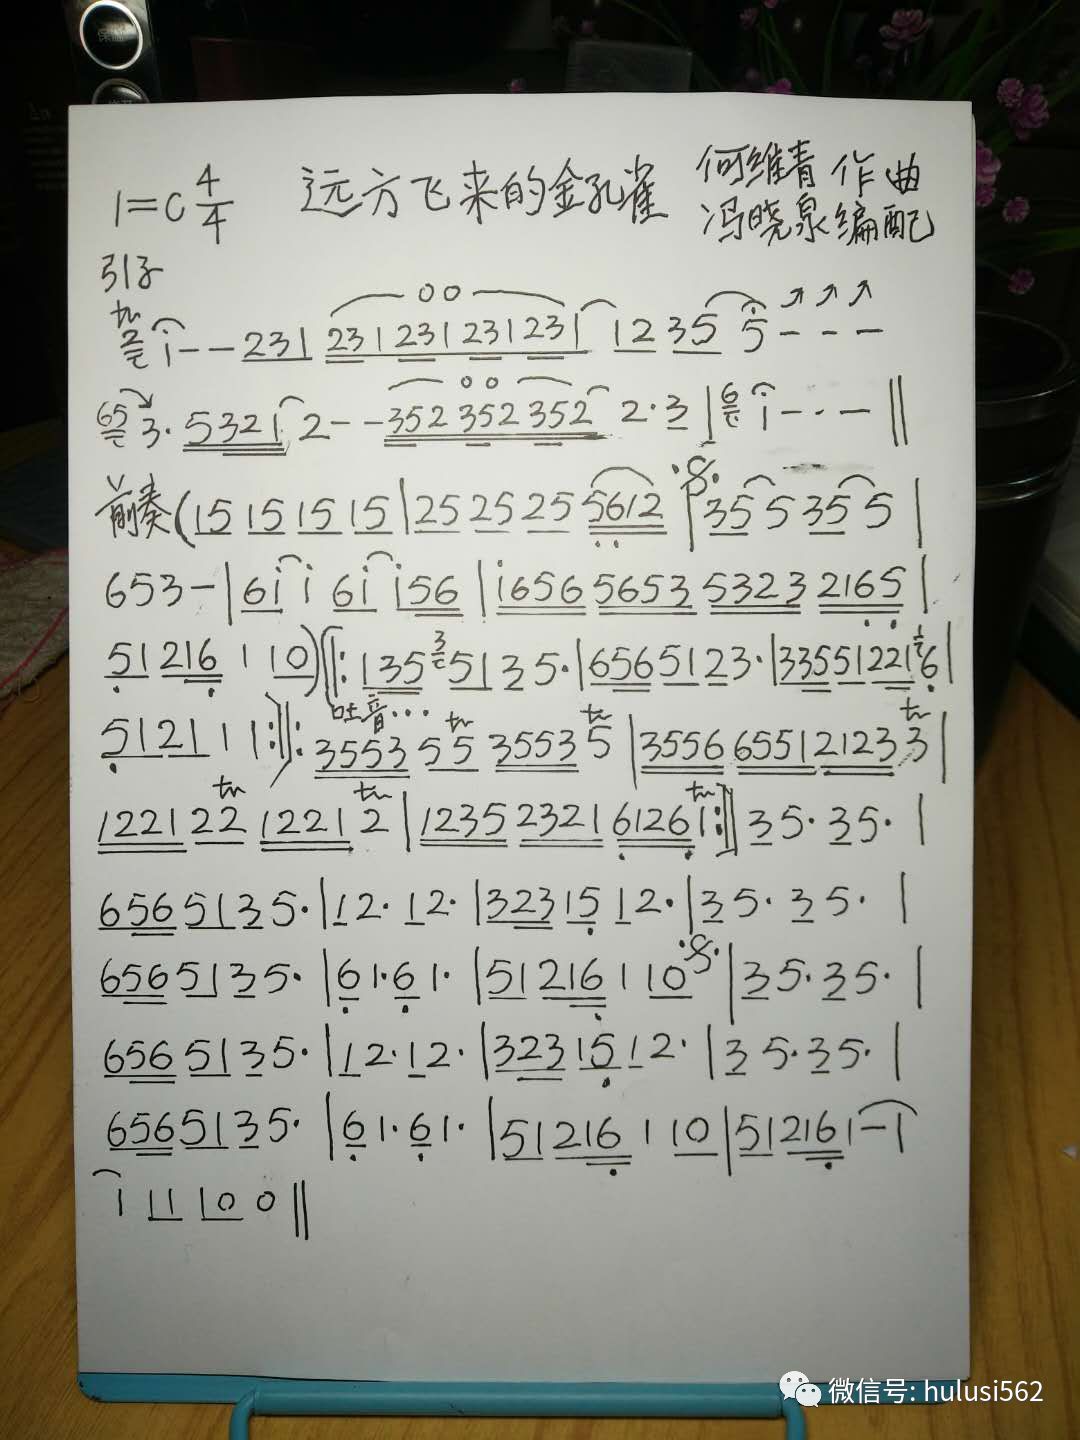 保温
1=C 4/4 远方飞来的金孔雀 何维青 作曲
冯晓泉编配
引子
tr 2 i - - 231 231 231 231 231 12 35 5 - - -
65 3· 5321 2 - - 352 352 352 2·3 | 6 i - · - ‖
前奏 (15 15 15 15 | 25 25 25 5612 | 35 5 35 5 |
653 - | 6i i 6i i56 | i656 5653 5323 2165 |
51 216 1 10) ‖: 135 3 51 3 5· | 656 51 23· | 335 51 221 1 6 |
51 21 1 1 :‖: 3553 5 5 3553 5 | 3556 6551 2123 3 |
吐音··· tr tr tr
1221 22 1221 2 | 1235 2321 6126 1 :‖ 3 5· 3 5· |
tr tr tr
656 51 3 5· | 12· 12· | 323 15 12· | 3 5· 3 5· |
656 51 3 5· | 61· 61· | 51 216 1 10 | 3 5· 3 5· |
656 51 3 5· | 12· 12· | 323 15 12· | 3 5· 3 5· |
656 51 3 5· | 61· 61· | 51 216 1 10 | 51 216 1 - 1
1 11 10 0 ‖
微信号: hulusi562